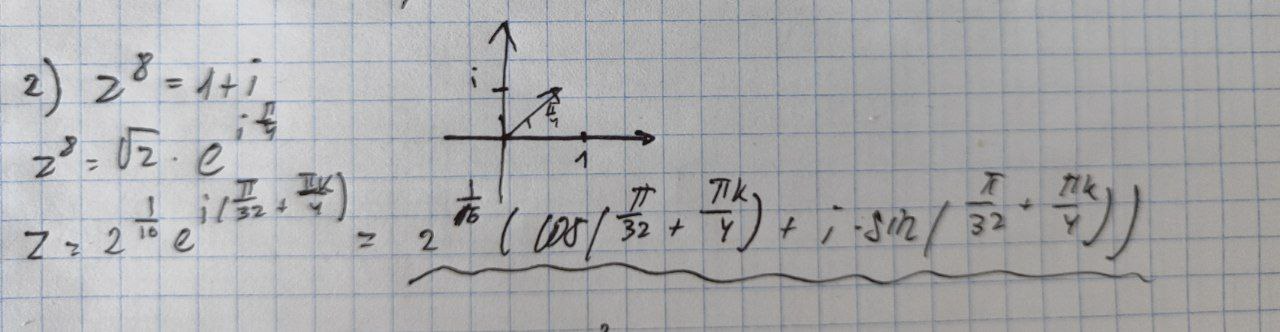 2) z⁸ = 1+i
i
π/4
1
z⁸ = √2 · e^(i π/4)
z = 2^(1/16) e^(i(π/32 + πk/4)) = 2^(1/16) (cos(π/32 + πk/4) + i·sin(π/32 + πk/4))